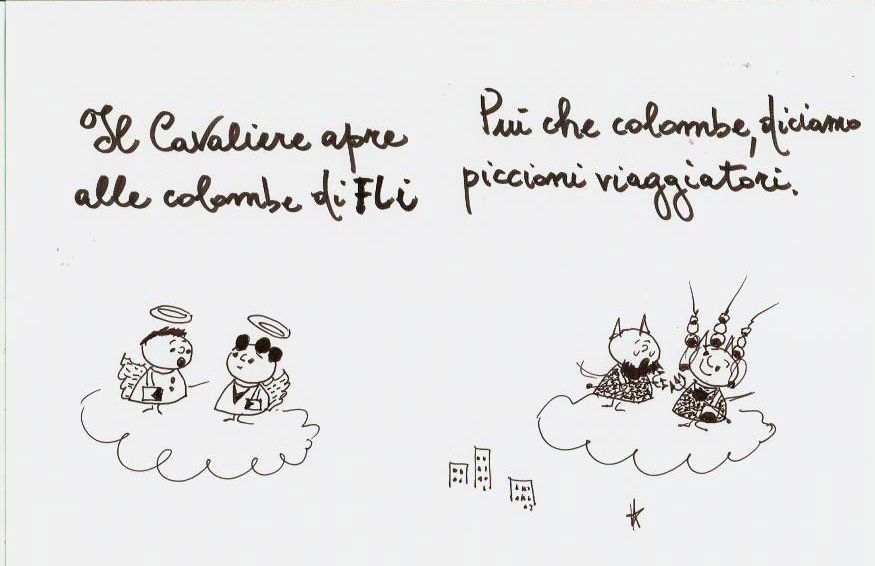 Il Cavaliere apre
alle colombe di FLi
Più che colombe, diciamo
piccioni viaggiatori.